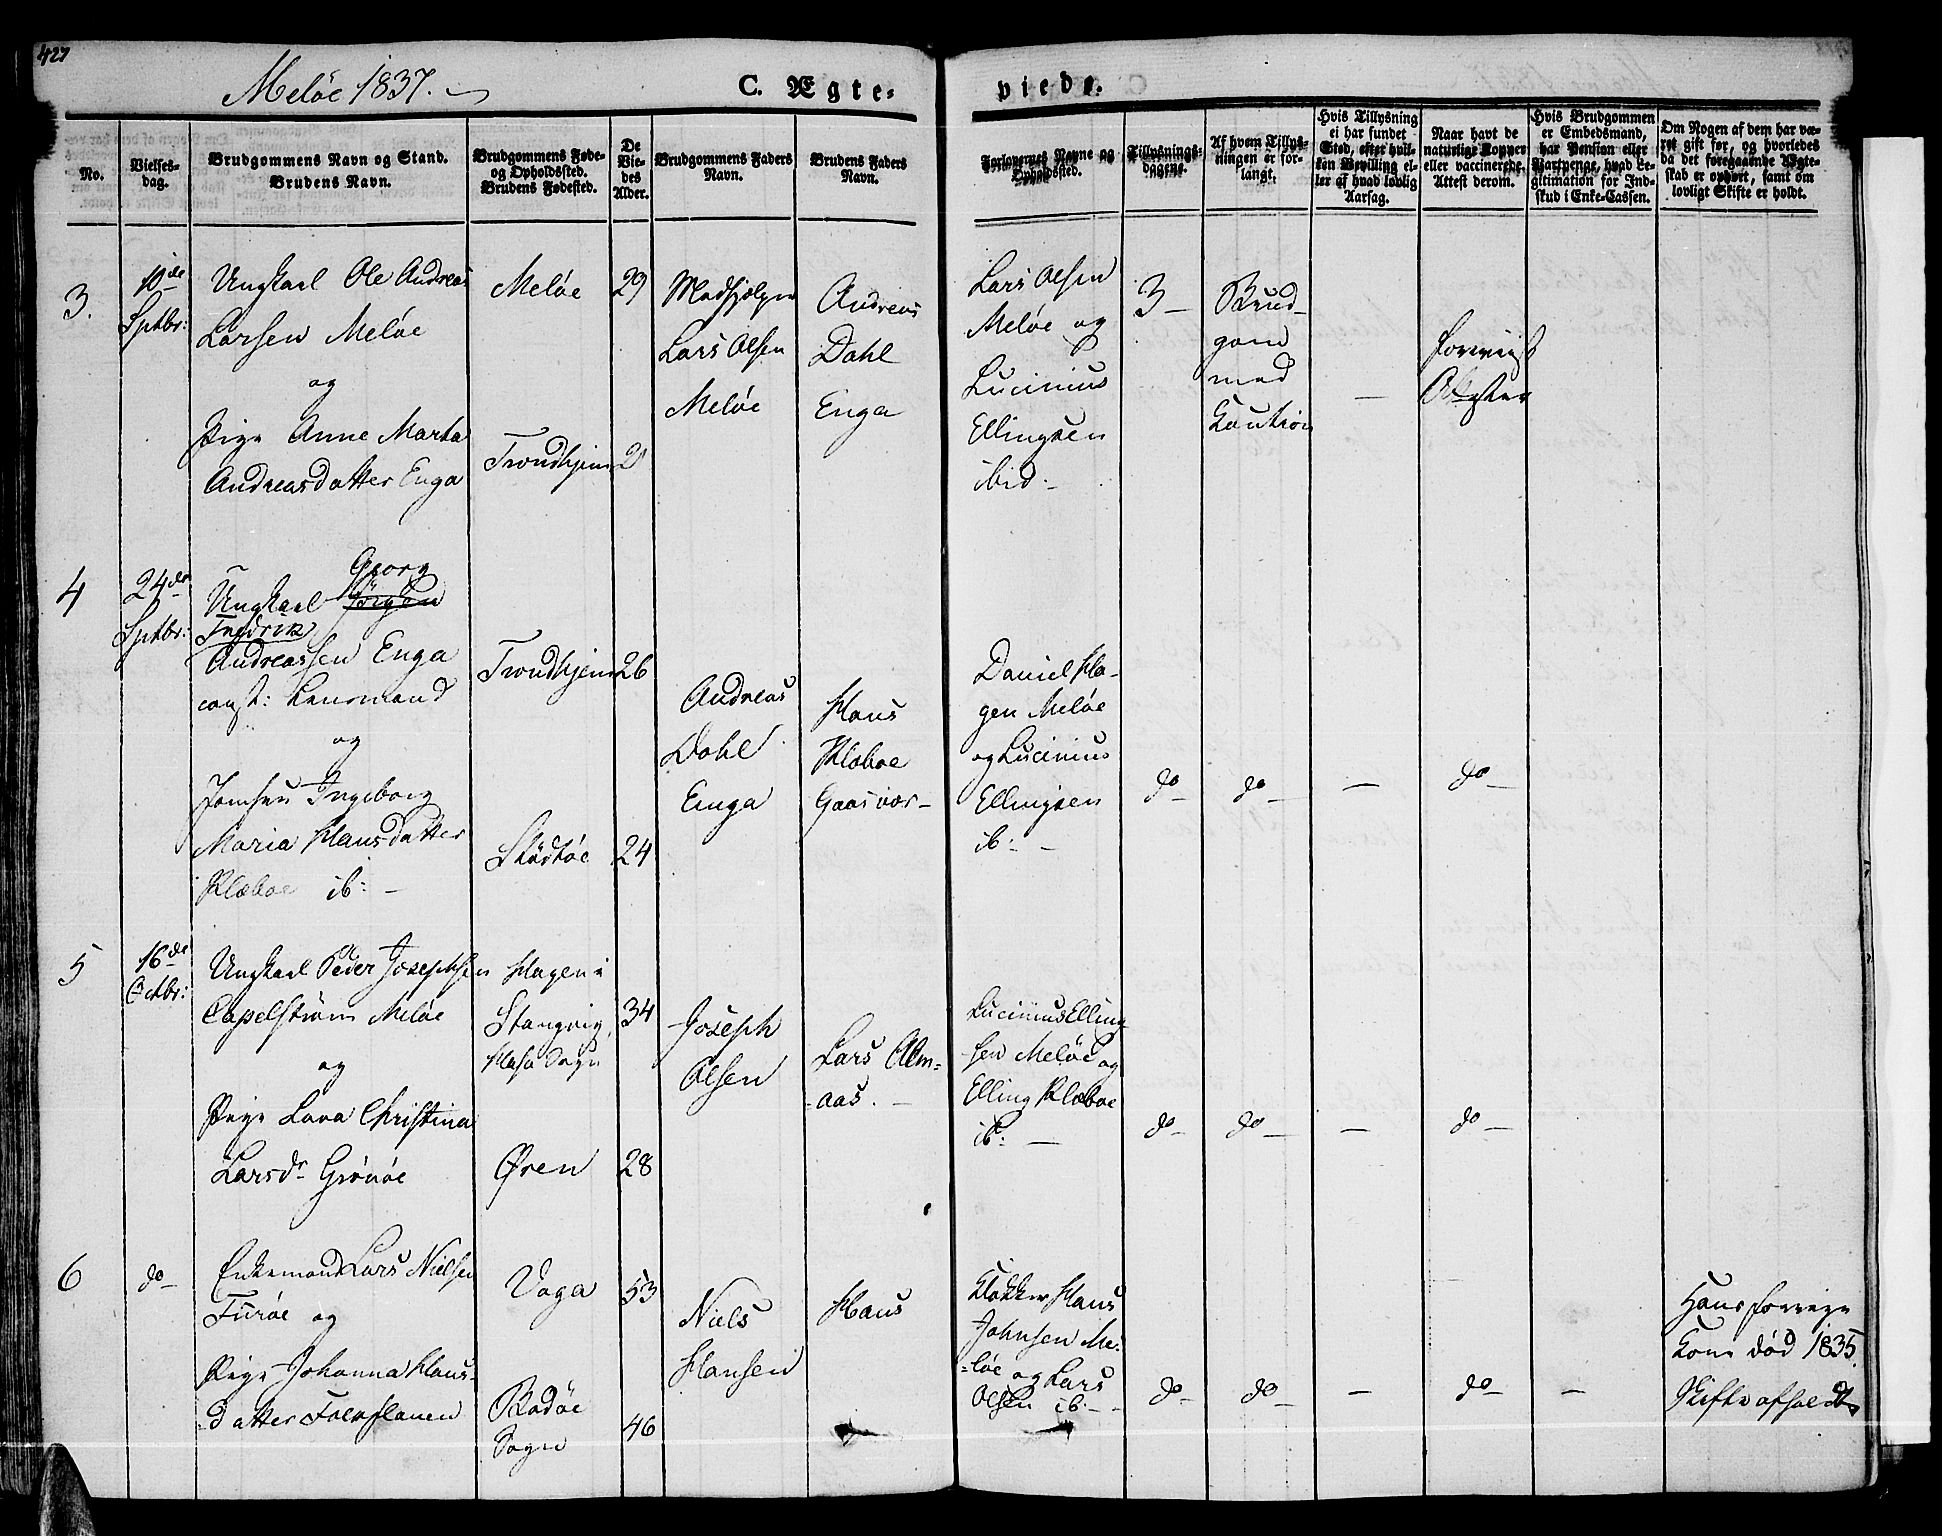 427
Meløe 1837.
C. Ægte-
viede.
No.
Vielses-
dag.
Brudgommens Navn og Stand.
Brudens Navn.
Brudgommens Føde-
og Opholdssted.
Brudens Fødested.
De
Vie-
des
Alder.
Brudgommens Faders
Navn.
Brudens Faders
Navn.
Forlovernes Navne og
Opholdssted.
Tillysnings-
dagene.
Af hvem Tillys-
ningen er for-
langt.
Hvis Tillysning
ei har fundet
Sted, efter hvil-
ken Bevilling el-
ler af hvad lovlig
Aarsag.
Naar havt de
naturlige Kopper
eller vaccinerede.
Attest derom.
Hvis Brudgommen
er Embedsmand,
har Pension eller
Vartpenge, hvad Le-
gitimation for Ind-
skud i Enke-Cassen.
Om Nogen af dem har væ-
ret gift før, og hvorledes
da det foregaaende Ægte-
skab er ophørt, samt om
lovligt Skifte er holdt.
3.
10de
Sptbr:
Ungkarl Ole Andreas
Larsen Meløe
og
Pige Anne Marta
Andreasdatter Enga
Meløe
Trondhjem
29
Lars Olsen
Meløe
Andreas
Dahl
Enga
Lars Olsen
Meløe og
Lucinius
Ellingsen
ibid.
3 —
Brud-
gom
med
Kaution
—
foreviist
Attester
4
24de
Sptbr:
Georg
Ungkarl Jørgen
Fredrik
Andreassen Enga
const: Lensmand
og
Jomfru Ingeborg
Maria Hansdatter
Klæboe ib: —
Trondhjem
Stødtøe
26
24
Andreas
Dahl
Enga
Hans
Klæboe
Gaasvær —
Daniel Ha-
gen Meløe
og Lucinius
Ellingsen
ib: —
do —
do —
—
do —
5
16de
Octbr:
Ungkarl Peder Josephsen
Capelstrøm Meløe
og
Pige Lava Christina
Larsdr Grønøe
Hagen i
Stangvig
Sogn
Øren
34
28
Joseph
Olsen
Lars Alm-
-aas. —
Lucinius Elling
sen Meløe og
Elling Klæboe
ib: —
do —
do —
—
do —
6
do —
Enkemand Lars Nielsen
Furøe og
Pige Johanna Hans-
-datter
Vaga
Bodøe
Sogn
53
46
Niels
Hansen
Hans
Klokker Hans
Johnsen Me-
-løe og Lars
Olsen ib. —
do —
do —
—
do —
—
Hans forrige
Kone død 1835.
Skifte afholdt